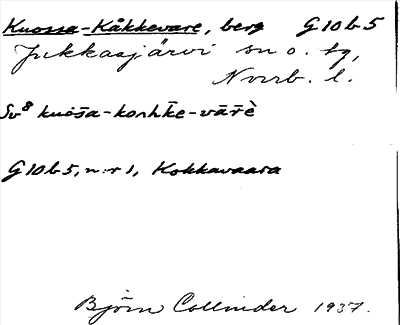 Kuossa-Kåkkevare, berg G10b5
Jukkasjärvi sn o. tg,
Norrb. l.
Sv8 kuos̄a-kohk̄e-vār̄è
G10b5, n:r 1, Kokkavaara
Björn Collinder 1937.